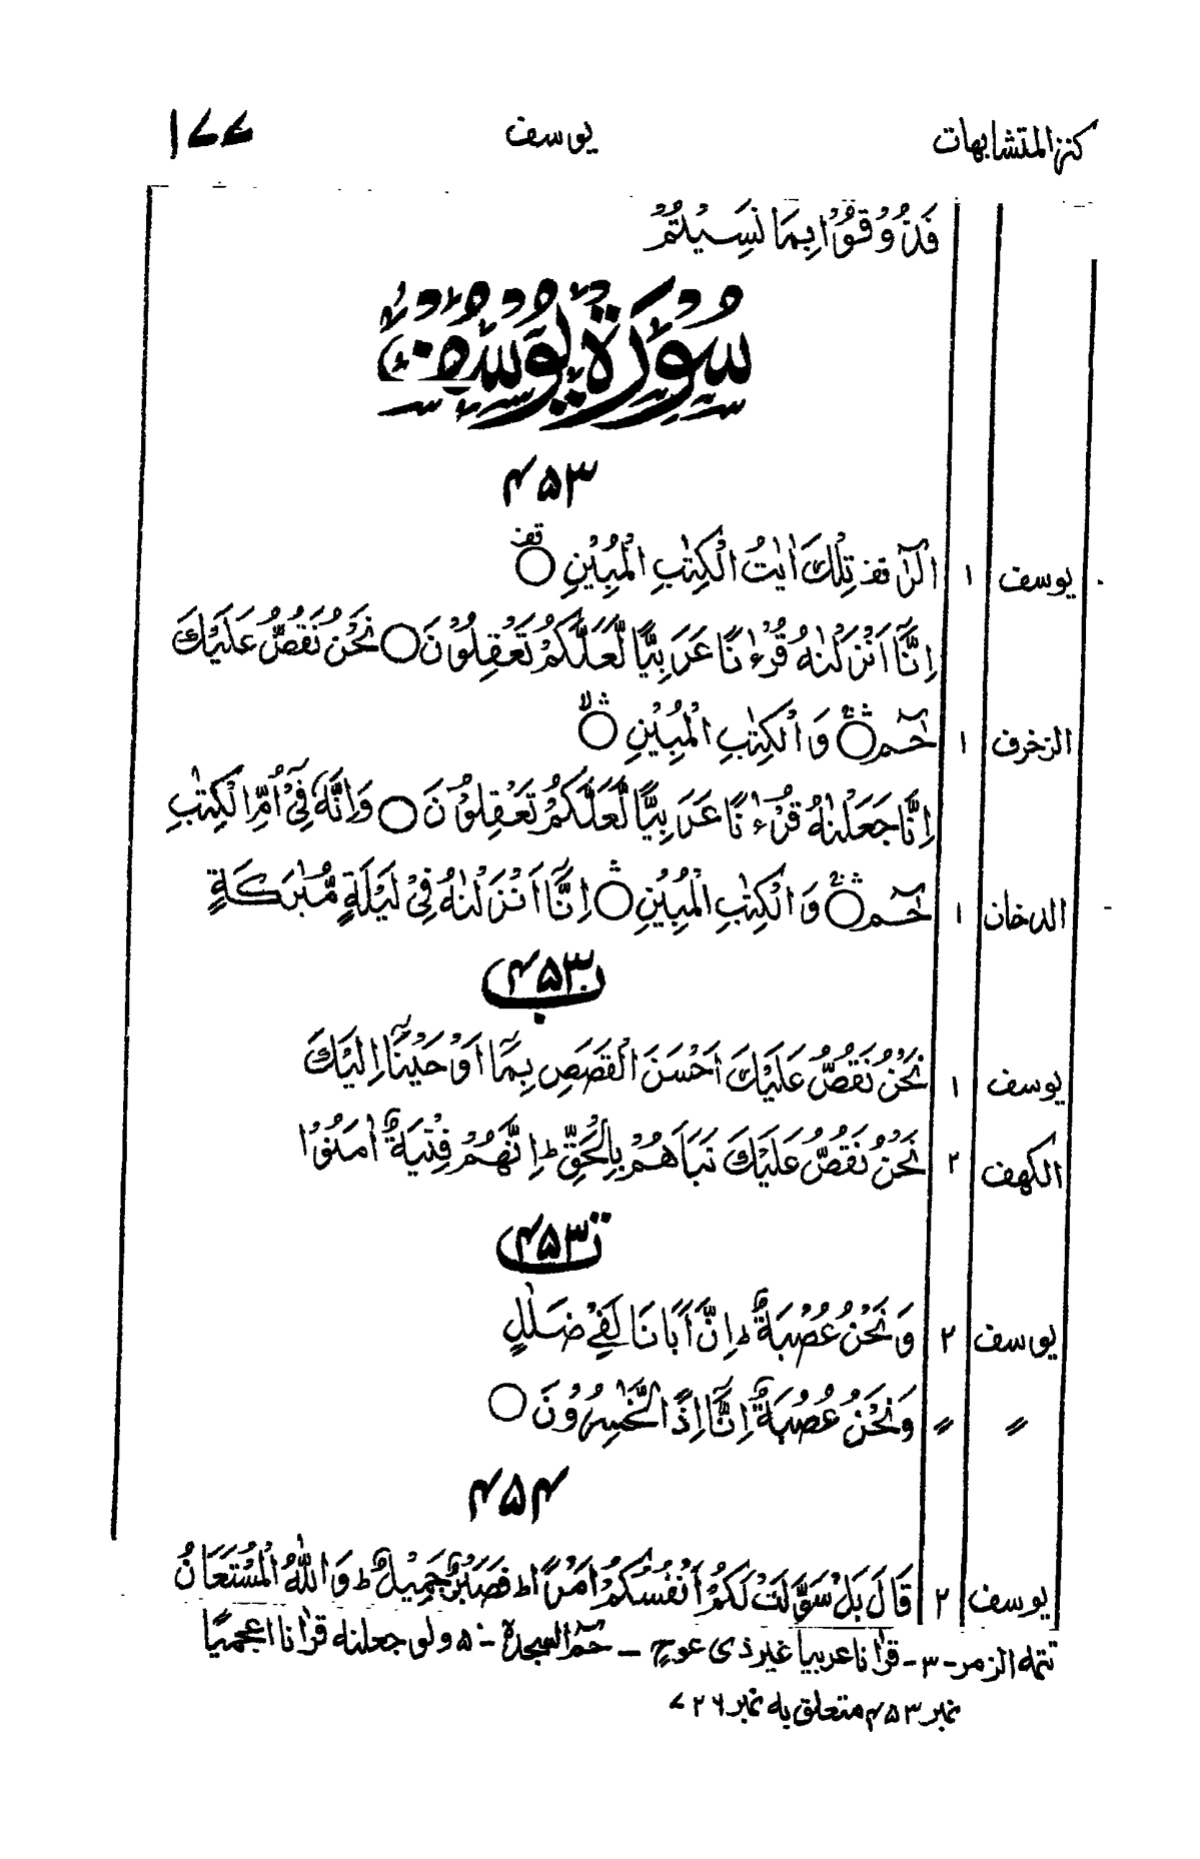 كنز المتشابهات يوسف ۱۷۷
فَذُوْقُوْا بِمَا نَسِيْتُمْ
سُوْرَةُ يُوْسُفَ
۴۵۳
يوسف ۱ الٓرٰ قف تِلْكَ اٰيٰتُ الْكِتٰبِ الْمُبِيْنِ ○ قف
اِنَّآ اَنْزَلْنٰهُ قُرْءٰنًا عَرَبِيًّا لَّعَلَّكُمْ تَعْقِلُوْنَ ○ نَحْنُ نَقُصُّ عَلَيْكَ
الزخرف ۱ حٰمٓ ○ وَالْكِتٰبِ الْمُبِيْنِ ○
اِنَّا جَعَلْنٰهُ قُرْءٰنًا عَرَبِيًّا لَّعَلَّكُمْ تَعْقِلُوْنَ ○ وَاِنَّهٗ فِيْٓ اُمِّ الْكِتٰبِ
الدخان ۱ حٰمٓ ○ وَالْكِتٰبِ الْمُبِيْنِ ○ اِنَّآ اَنْزَلْنٰهُ فِيْ لَيْلَةٍ مُّبٰرَكَةٍ
۴۵۳ ب
يوسف ۱ نَحْنُ نَقُصُّ عَلَيْكَ اَحْسَنَ الْقَصَصِ بِمَآ اَوْحَيْنَآ اِلَيْكَ
الكهف ۲ نَحْنُ نَقُصُّ عَلَيْكَ نَبَاَهُمْ بِالْحَقِّ ط اِنَّهُمْ فِتْيَةٌ اٰمَنُوْا
۴۵۳ ت
يوسف ۲ وَنَحْنُ عُصْبَةٌ ط اِنَّ اَبَانَا لَفِيْ ضَلٰلٍ
〃 〃 وَنَحْنُ عُصْبَةٌ اِنَّآ اِذًا لَّخٰسِرُوْنَ ○
۴۵۴
يوسف ۲ قَالَ بَلْ سَوَّلَتْ لَكُمْ اَنْفُسُكُمْ اَمْرًا ط فَصَبْرٌ جَمِيْلٌ ط وَاللّٰهُ الْمُسْتَعَانُ
تتمه الزمر - ۳ - قرآنا عربيا غير ذى عوج - حٰمٓ السجدة - ۵ ولو جعلنه قرآنا اعجميًا
نمبر ۴۵۳ متعلق به نمبر ۷۲۶